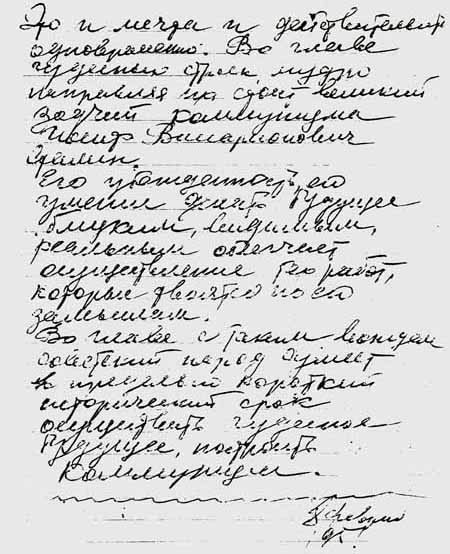 Это и мечта и действительность
одновременно. Во главе
чудесных строек, мудро
направляя их стоит великий
зодчий коммунизма
Иосиф Виссарионович
Сталин.
Его убежденность, его
умение делать будущее
близким, видимым,
реальным облегчает
осуществление тех работ,
которые творятся по его
замыслам.
Во главе с таким вождем
советский народ сумеет
в предельно короткий
исторический срок
осуществить чудесное
будущее, построить
Коммунизм.